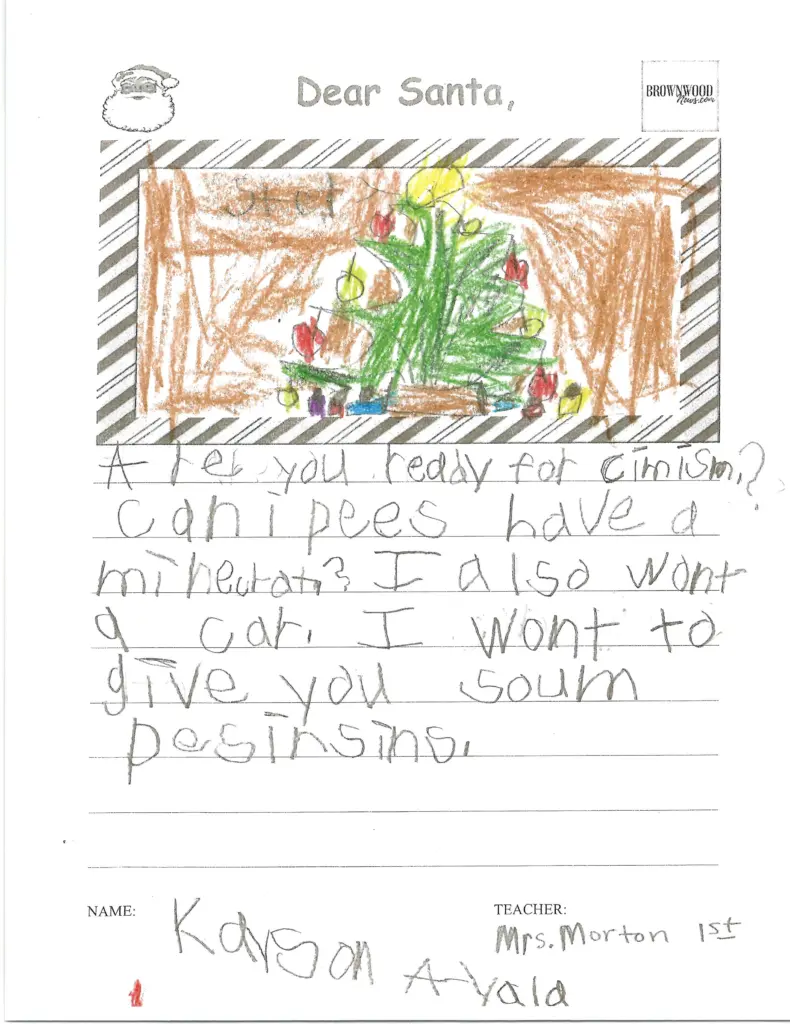 Dear Santa,
BROWNWOOD
News.com
A rer you ready for cimism,?
can i pees have a
minecraft? I also wont
a car. I wont to
give you soum
pesinsins.
NAME:
Kayson A-yala
TEACHER:
Mrs. Morton 1st
1